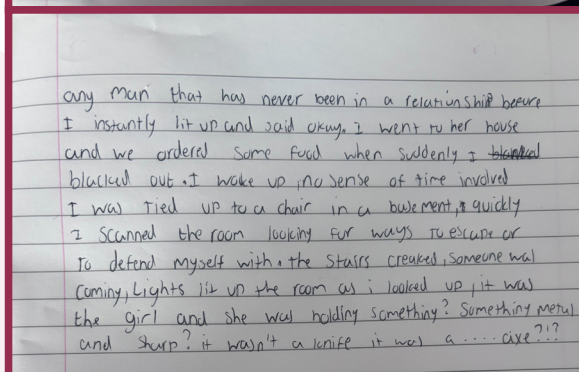 any man that has never been in a relationship before
I instantly lit up and said okay. I went to her house
and we ordered some food when suddenly I
blacked out. I woke up, no sense of time involved
I was tied up to a chair in a basement, quickly
I scanned the room looking for ways to escape or
to defend myself with. the stairs creaked, someone was
coming, Lights lit up the room as i looked up, it was
the girl and she was holding something? Something metal
and sharp? it wasn't a knife it was a ..... axe?!?